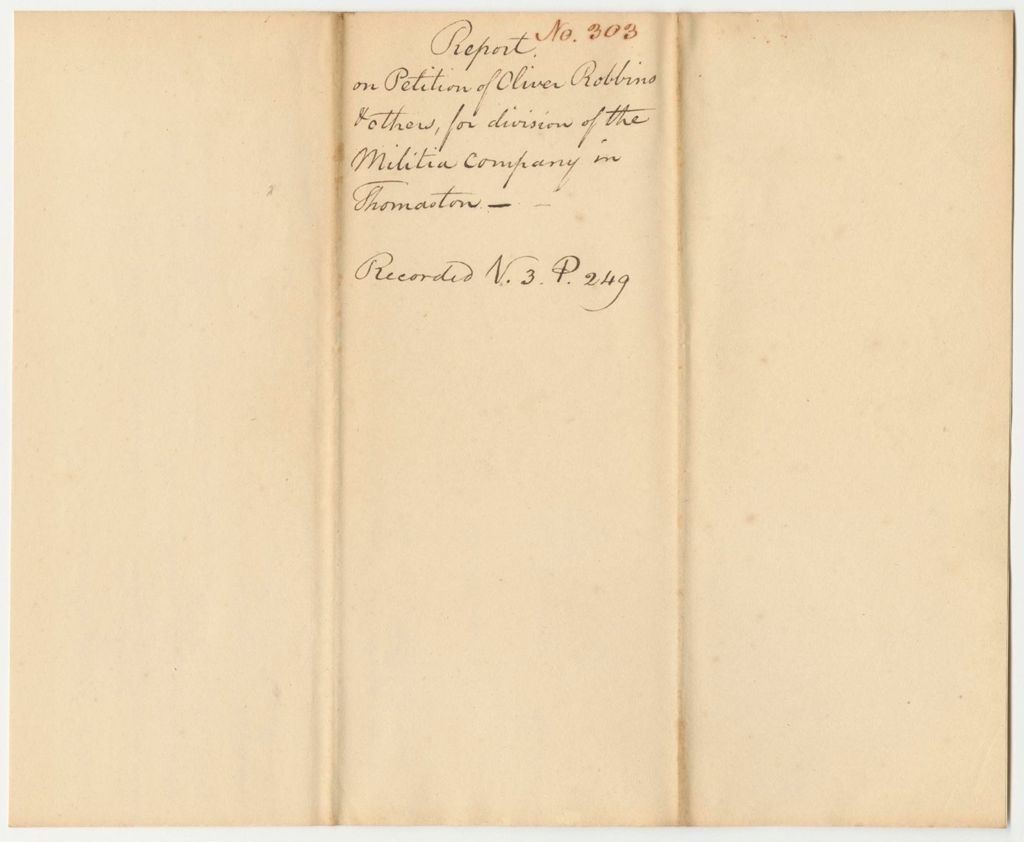 Report. No. 303
on Petition of Oliver Robbins
& others, for division of the
Militia Company in
Thomaston —
Recorded V. 3. P. 249